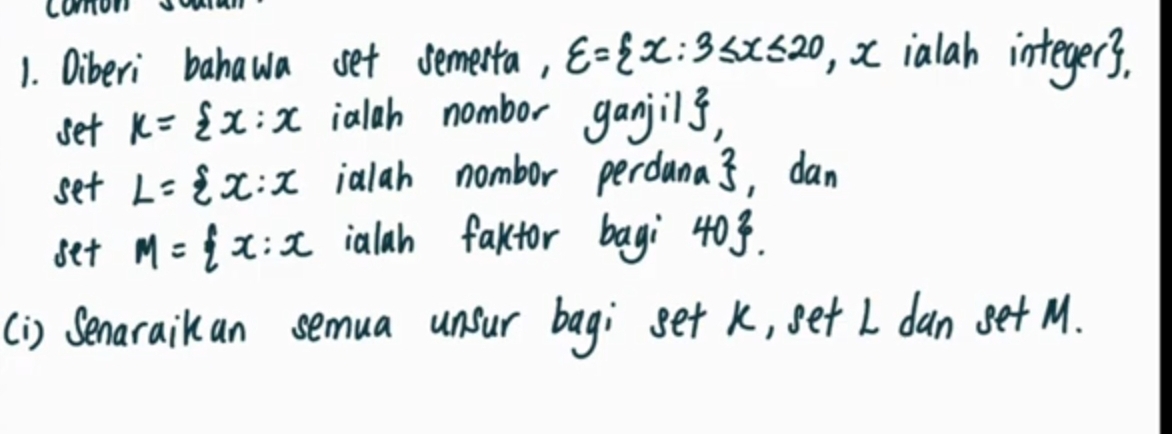 1. Diberi bahawa set semesta, ε={x:3≤x≤20, x ialah integer},
set K= {x:x ialah nombor ganjil},
set L= {x:x ialah nombor perdana}, dan
set M= {x:x ialah faktor bagi 40}.
(i) Senaraikan semua unsur bagi set K, set L dan set M.